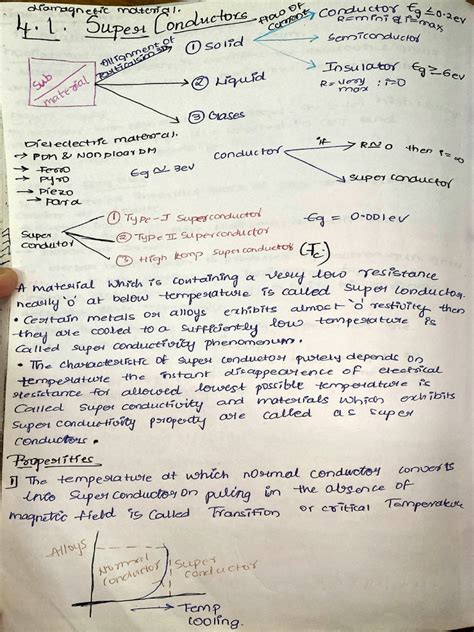 diamagnetic material.
4.1. Super Conductors
Flow of current
Conductor Eg ≤ 0.2ev
R = mini & i = max
Semiconductor
Insulator Eg ≥ 6ev
R = very max : i = 0
Sub material
Allignment of
① Solid
② Liquid
③ Gases
Dielectric material.
→ PDM & NonploarDM
→ Ferro
→ Pyro
→ Piezo
→ Para
Eg ≃ 3ev
Conductor
if → R≃0 then i = ∞
super conductor
Eg = 0.001ev
Super Condutor
① Type-I Superconductor
② Type II Superconductor
③ High temp superconductor (Tc)
A material which is containing a very low resistance
nearly 'o' at below temperature is called superconductor.
• Certain metals or alloys exhibits almost 'o' restivity then
they are cooled to a sufficiently low temperature is
called super conductivity phenomenum.
• The characteristic of super conductor purely depends on
temperature the instant disappearence of electrical
resistance for allowed lowest possible temperature is
Called Super conductivity and materials which exhibits
super conductivity property are called as super
conductors.
Properities
1] The temperature at which normal conductor converts
into Superconductor on puling in the absence of
magnetic field is called Transition or critical Temperature
Alloys
Normal conductor
Super conductor
→ Temp
cooling.